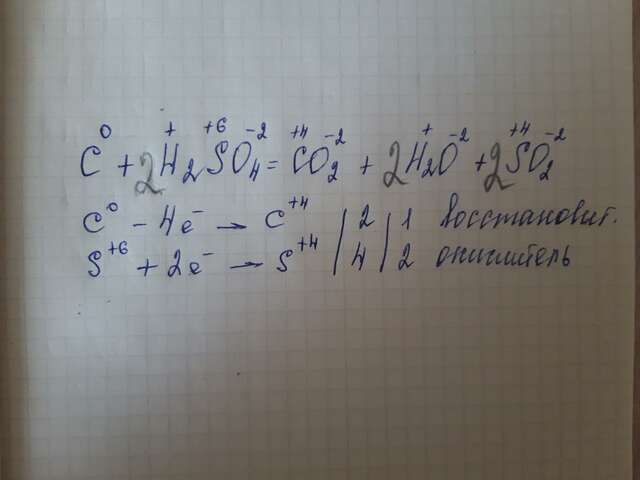 C⁰ + 2H₂⁺S⁺⁶O₄⁻² = C⁺⁴O₂⁻² + 2H₂⁺O⁻² + 2S⁺⁴O₂⁻²
C⁰ - 4e⁻ → C⁺⁴ | 2 | 1 восстановит.
S⁺⁶ + 2e⁻ → S⁺⁴ | 4 | 2 окислитель